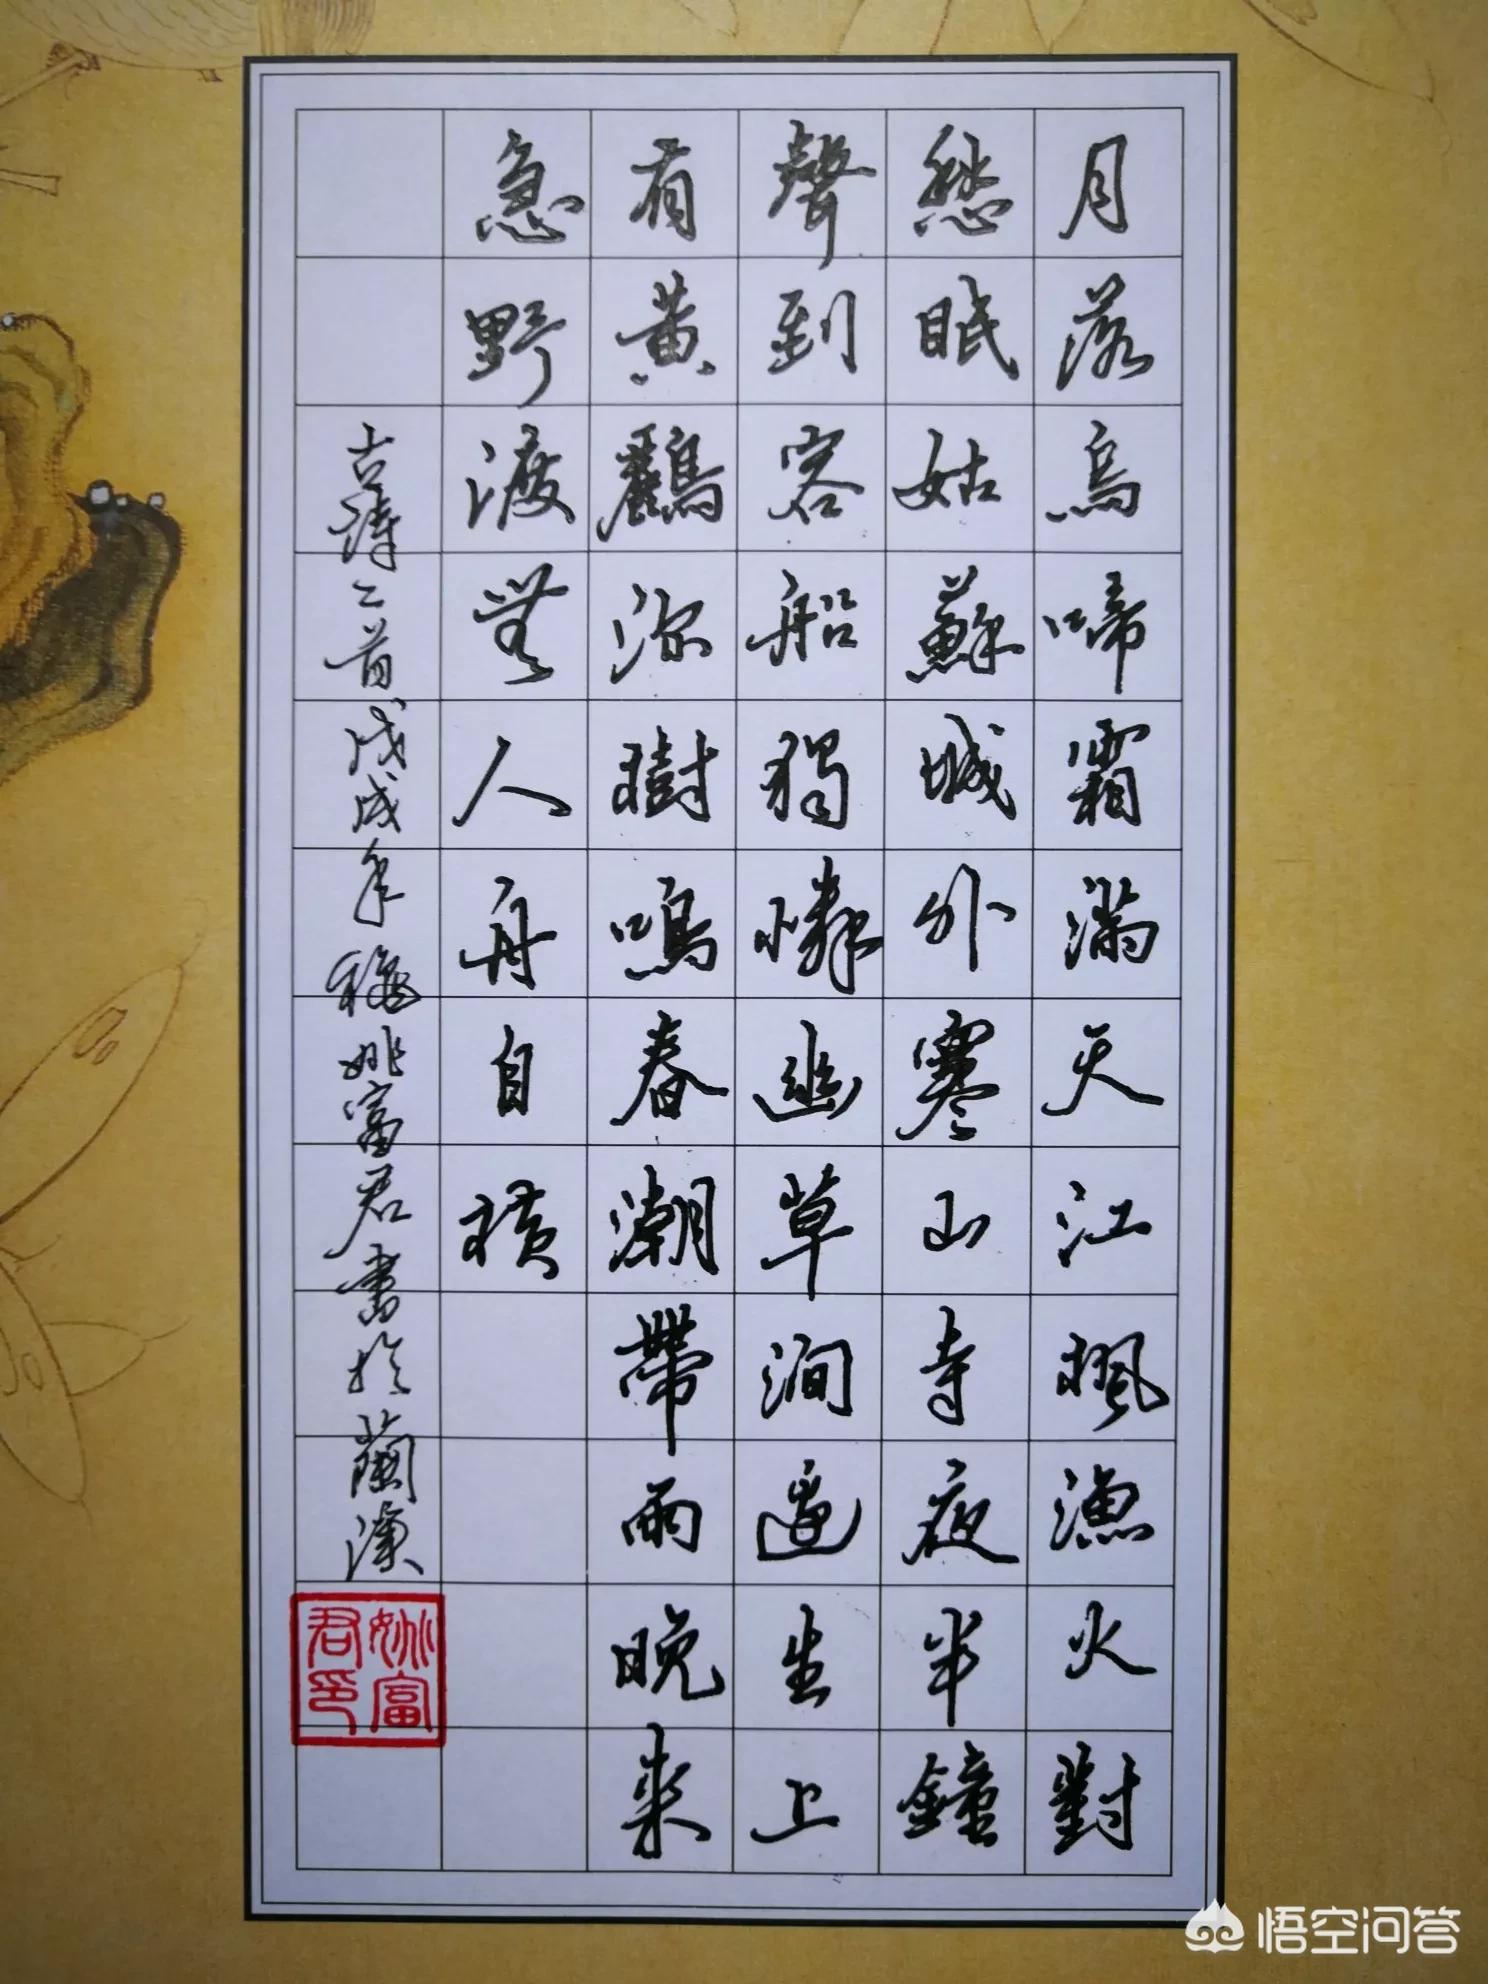 月落烏啼霜滿天江楓漁火對
愁眠姑蘇城外寒山寺夜半鐘
聲到客船獨憐幽草澗邊生上
有黃鸝深樹鳴春潮帶雨晚來
急野渡無人舟自橫
古詩二首戊戌年秋姚富君書於蘭溪
姚富君印
悟空问答